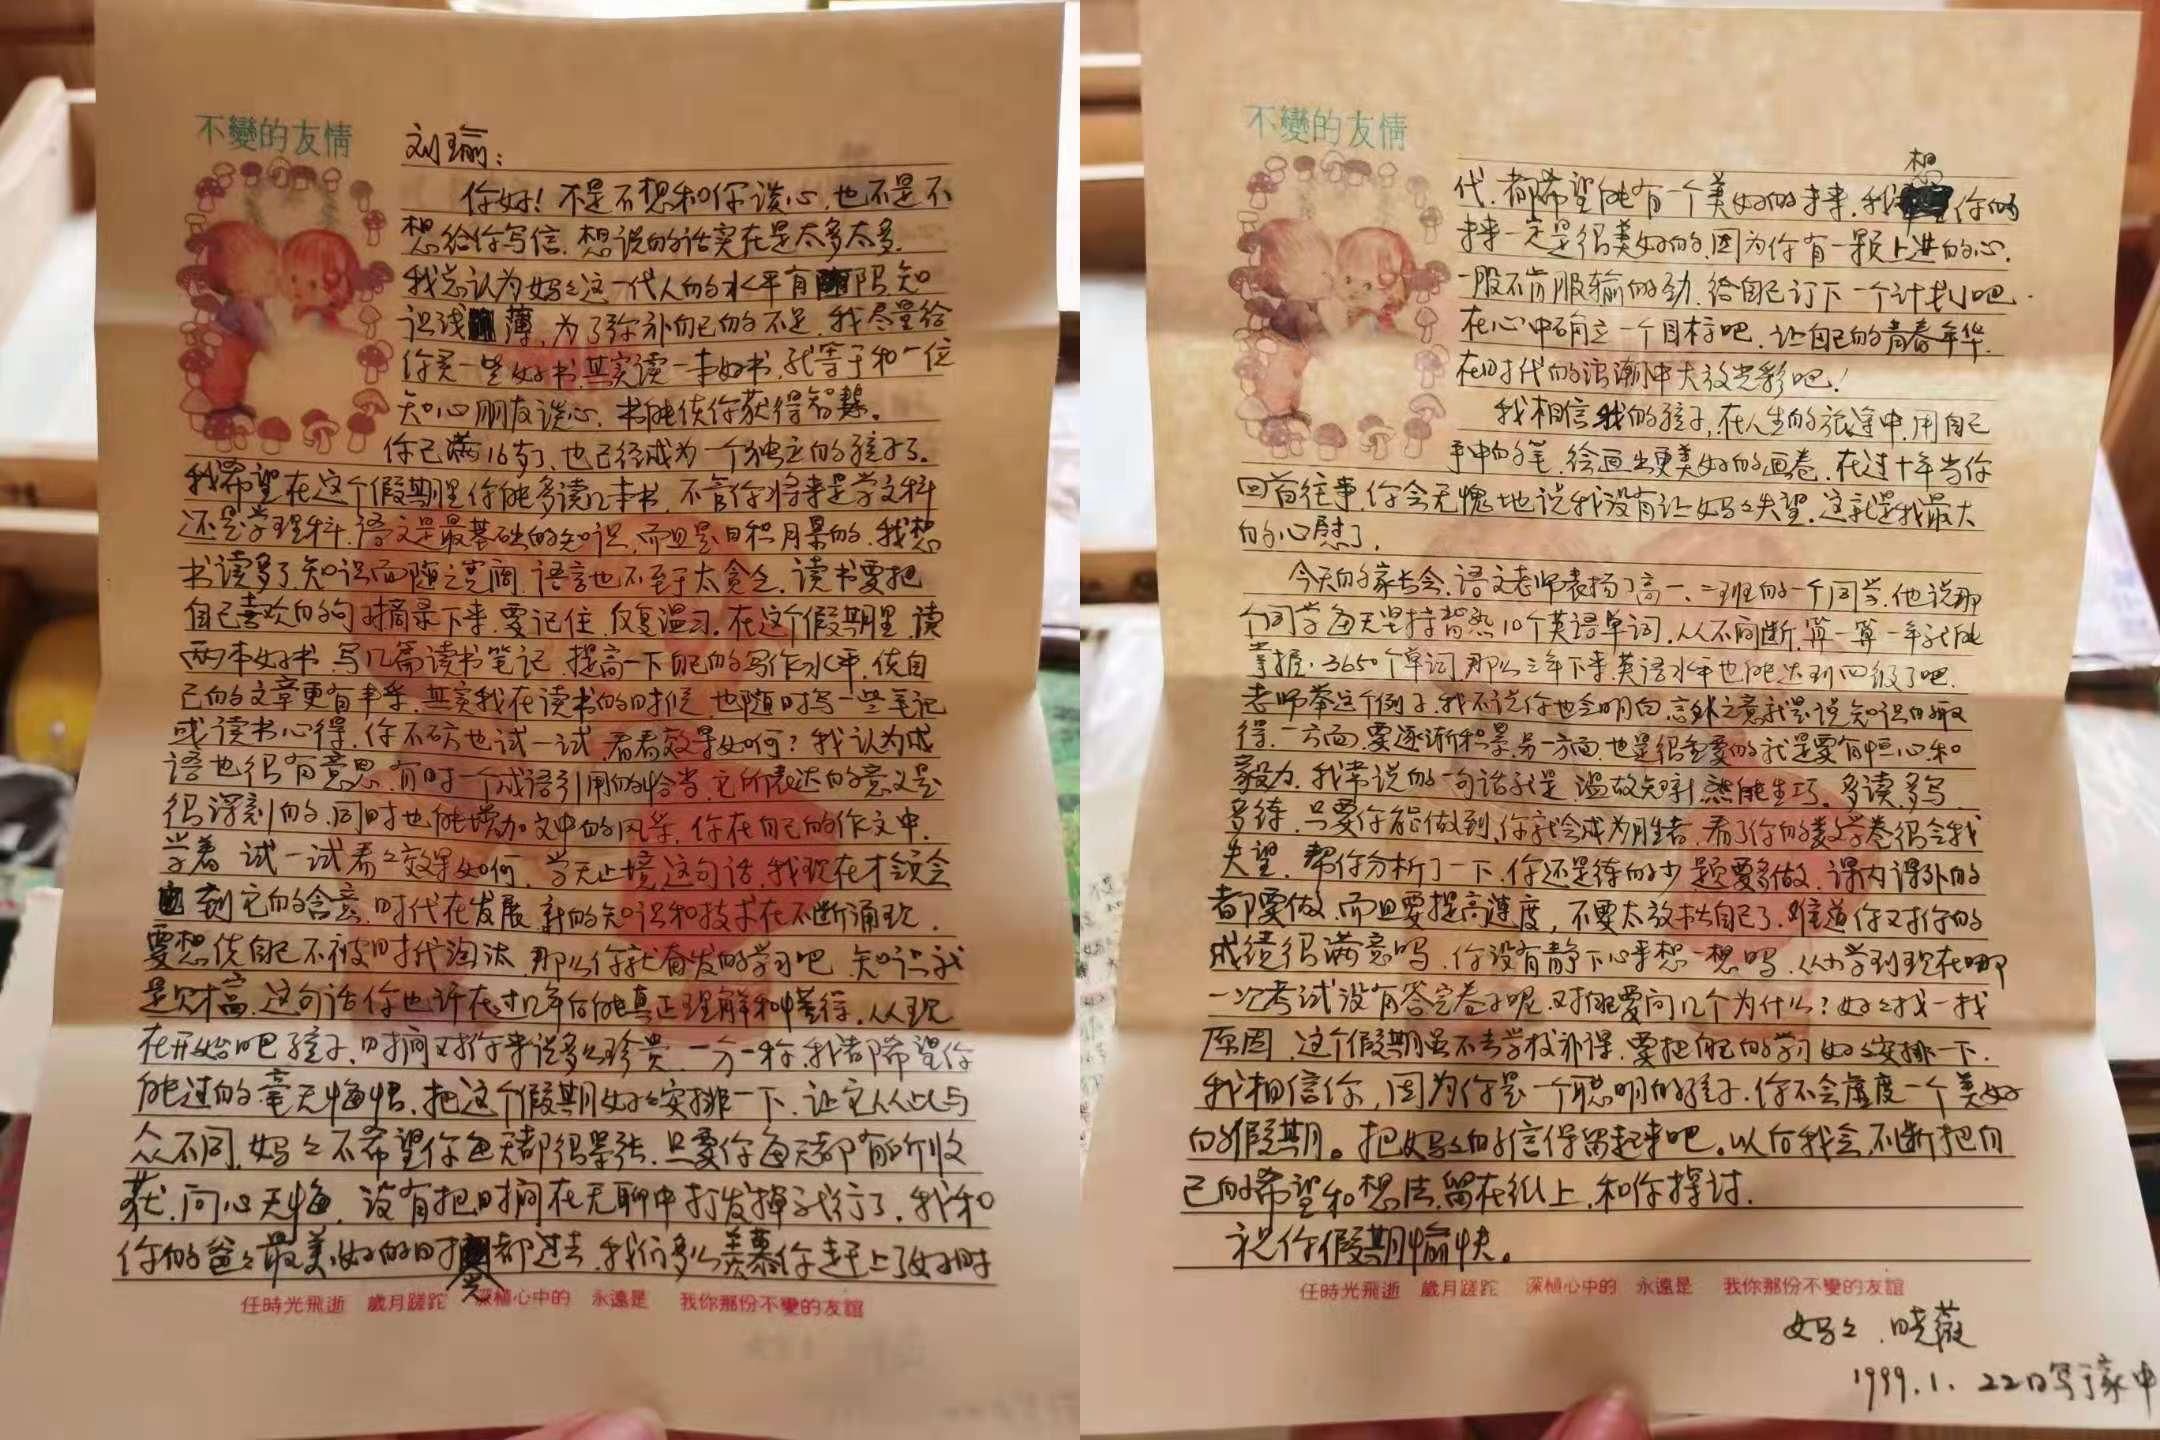 不變的友情
刘瑜：
你好！不是不想和你谈心，也不是不
想给你写信，想说的话实在是太多太多，
我总认为妈々这一代人的水平有限知
识浅薄，为了弥补自己的不足，我尽量给
你买一些好书，其实读一本好书，就等于和一位
知心朋友谈心，书能使你获得智慧。
你已满16岁了，也已经成为一个独立的孩子了。
我希望在这个假期里你能多读几本书，不管你将来是学文科
还是学理科，语文是最基础的知识，而且是日积月累的，我想
书读多了，知识面随之宽阔，语言也不至于太贪乏，读书要把
自己喜欢的句对摘录下来，要记住，反复温习，在这个假期里，读
两本好书，写几篇读书笔记，提高一下自己的写作水平，使自
己的文章更有丰华，其实我在读书的时候，也随时写一些笔记
或读书心得，你不妨也试一试，看看效果如何？我认为成
语也很有意思，有时一个成语引用的恰当，它所表达的意义是
很深刻的，同时也能增加文中的风采，你在自己的作文中，
学着试一试看々效果如何，学无止境这句话，我现在才领会
到它的含意，时代在发展，新的知识和技术在不断涌现，
要想使自己不被时代淘汰，那么你就奋发的学习吧，知识就
是财富，这句话你也许在过几年后能真正理解和懂得，从现
在开始吧孩子，时间对你来说多么珍贵，一分一秒，我都希望你
能过的毫无悔恨，把这个假期好々安排一下，让它从此与
众不同，妈々不希望你每天都很紧张，只要你每天都有所收
获，问心无悔，没有把时间在无聊中打发掉就行了，我和
你的爸々最美好的时光都过去，我们多么羡慕你赶上了好时
任時光飛逝 歲月蹉跎 深植心中的 永遠是 我你那份不變的友誼
不變的友情
代，都希望能有一个美好的未来，我想你的
未来一定是很美好的，因为你有一颗上进的心，
一股不肯服输的劲，给自己订下一个计划吧，
在心中确立一个目标吧，让自己的青春年华，
在时代的浪潮中大放光彩吧！
我相信我的孩子，在人生的旅途中，用自己
手中的笔，绘画出更美好的画卷，在过十年当你
回首往事，你会无愧地说我没有让妈々失望，这就是我最大
的心慰了，
今天的家长会，语文老师表扬了高一、二班的一个同学，他说那
个同学每天坚持背熟10个英语单词，从不间断，算一算一年就能
掌握3650个单词，那么三年下来英语水平也能达到四级了吧，
老师举这个例子，我不说你也会明白，言外之意就是说知识的取
得，一方面要逐渐积累，另一方面，也是很重要的就是要有恒心和
毅力，我常说的一句话就是，温故知新，熟能生巧。多读，多写，
多练，只要你能做到，你就会成为胜者，看了你的数学卷很令我
失望，帮你分析了一下，你还是练的少，题要多做，课内课外的
都要做，而且要提高速度，不要太放松自己了，难道你对你的
成绩很满意吗，你没有静下心来想一想吗，从小学到现在哪
一次考试没有答完卷子呢，对，要问几个为什么？好々找一找
原因，这个假期虽不去学校补课，要把自己的学习好々安排一下，
我相信你，因为你是一个聪明的孩子，你不会虚度一个美好
的假期。把妈々的信保留起来吧。以后我会不断把自
己的希望和想法，留在纸上，和你探讨，
祝你假期愉快。
任時光飛逝 歲月蹉跎 深植心中的 永遠是 我你那份不變的友誼
妈々，晓薇
1999.1.22日写于家中